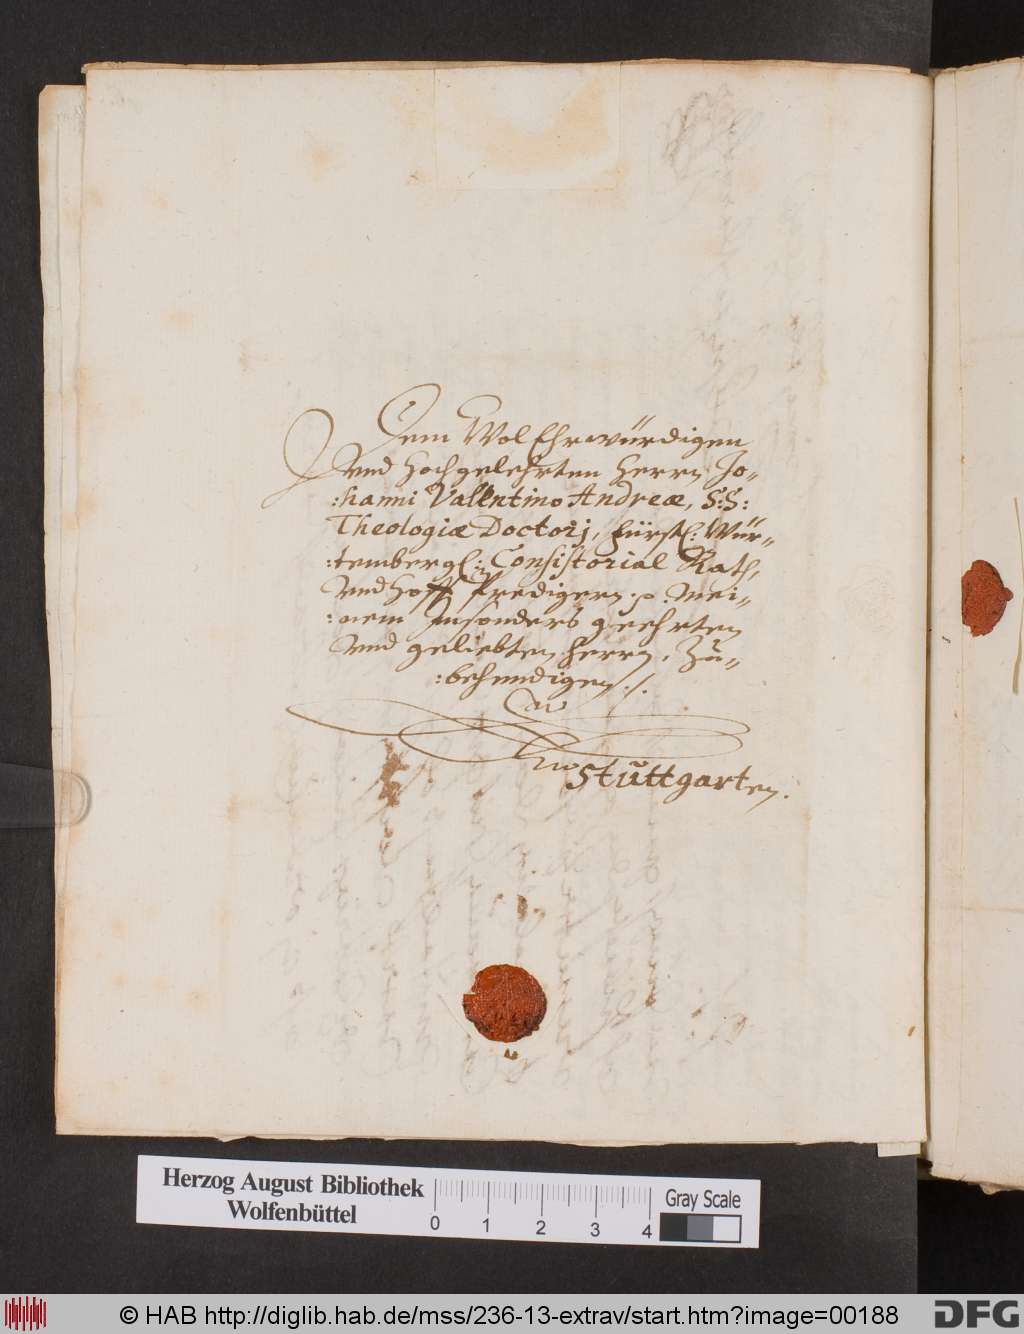 Dem Wol Ehrwürdigen
Vnd Hochgelehrten Herrn Jo-
:hanni Vallentino Andreæ, S:S:
Theologiæ Doctori, Fürstl: Wür-
:tembergl: Consistorial Rath,
Vnd Hoff Predigern .p. Mei-
:nem Insonders geehrten
Vnd geliebten Herrn, Zu-
:behendigen ./.
Stuttgarten.
Herzog August Bibliothek
Wolfenbüttel
0 1 2 3 4
Gray Scale
© HAB http://diglib.hab.de/mss/236-13-extrav/start.htm?image=00188
DFG